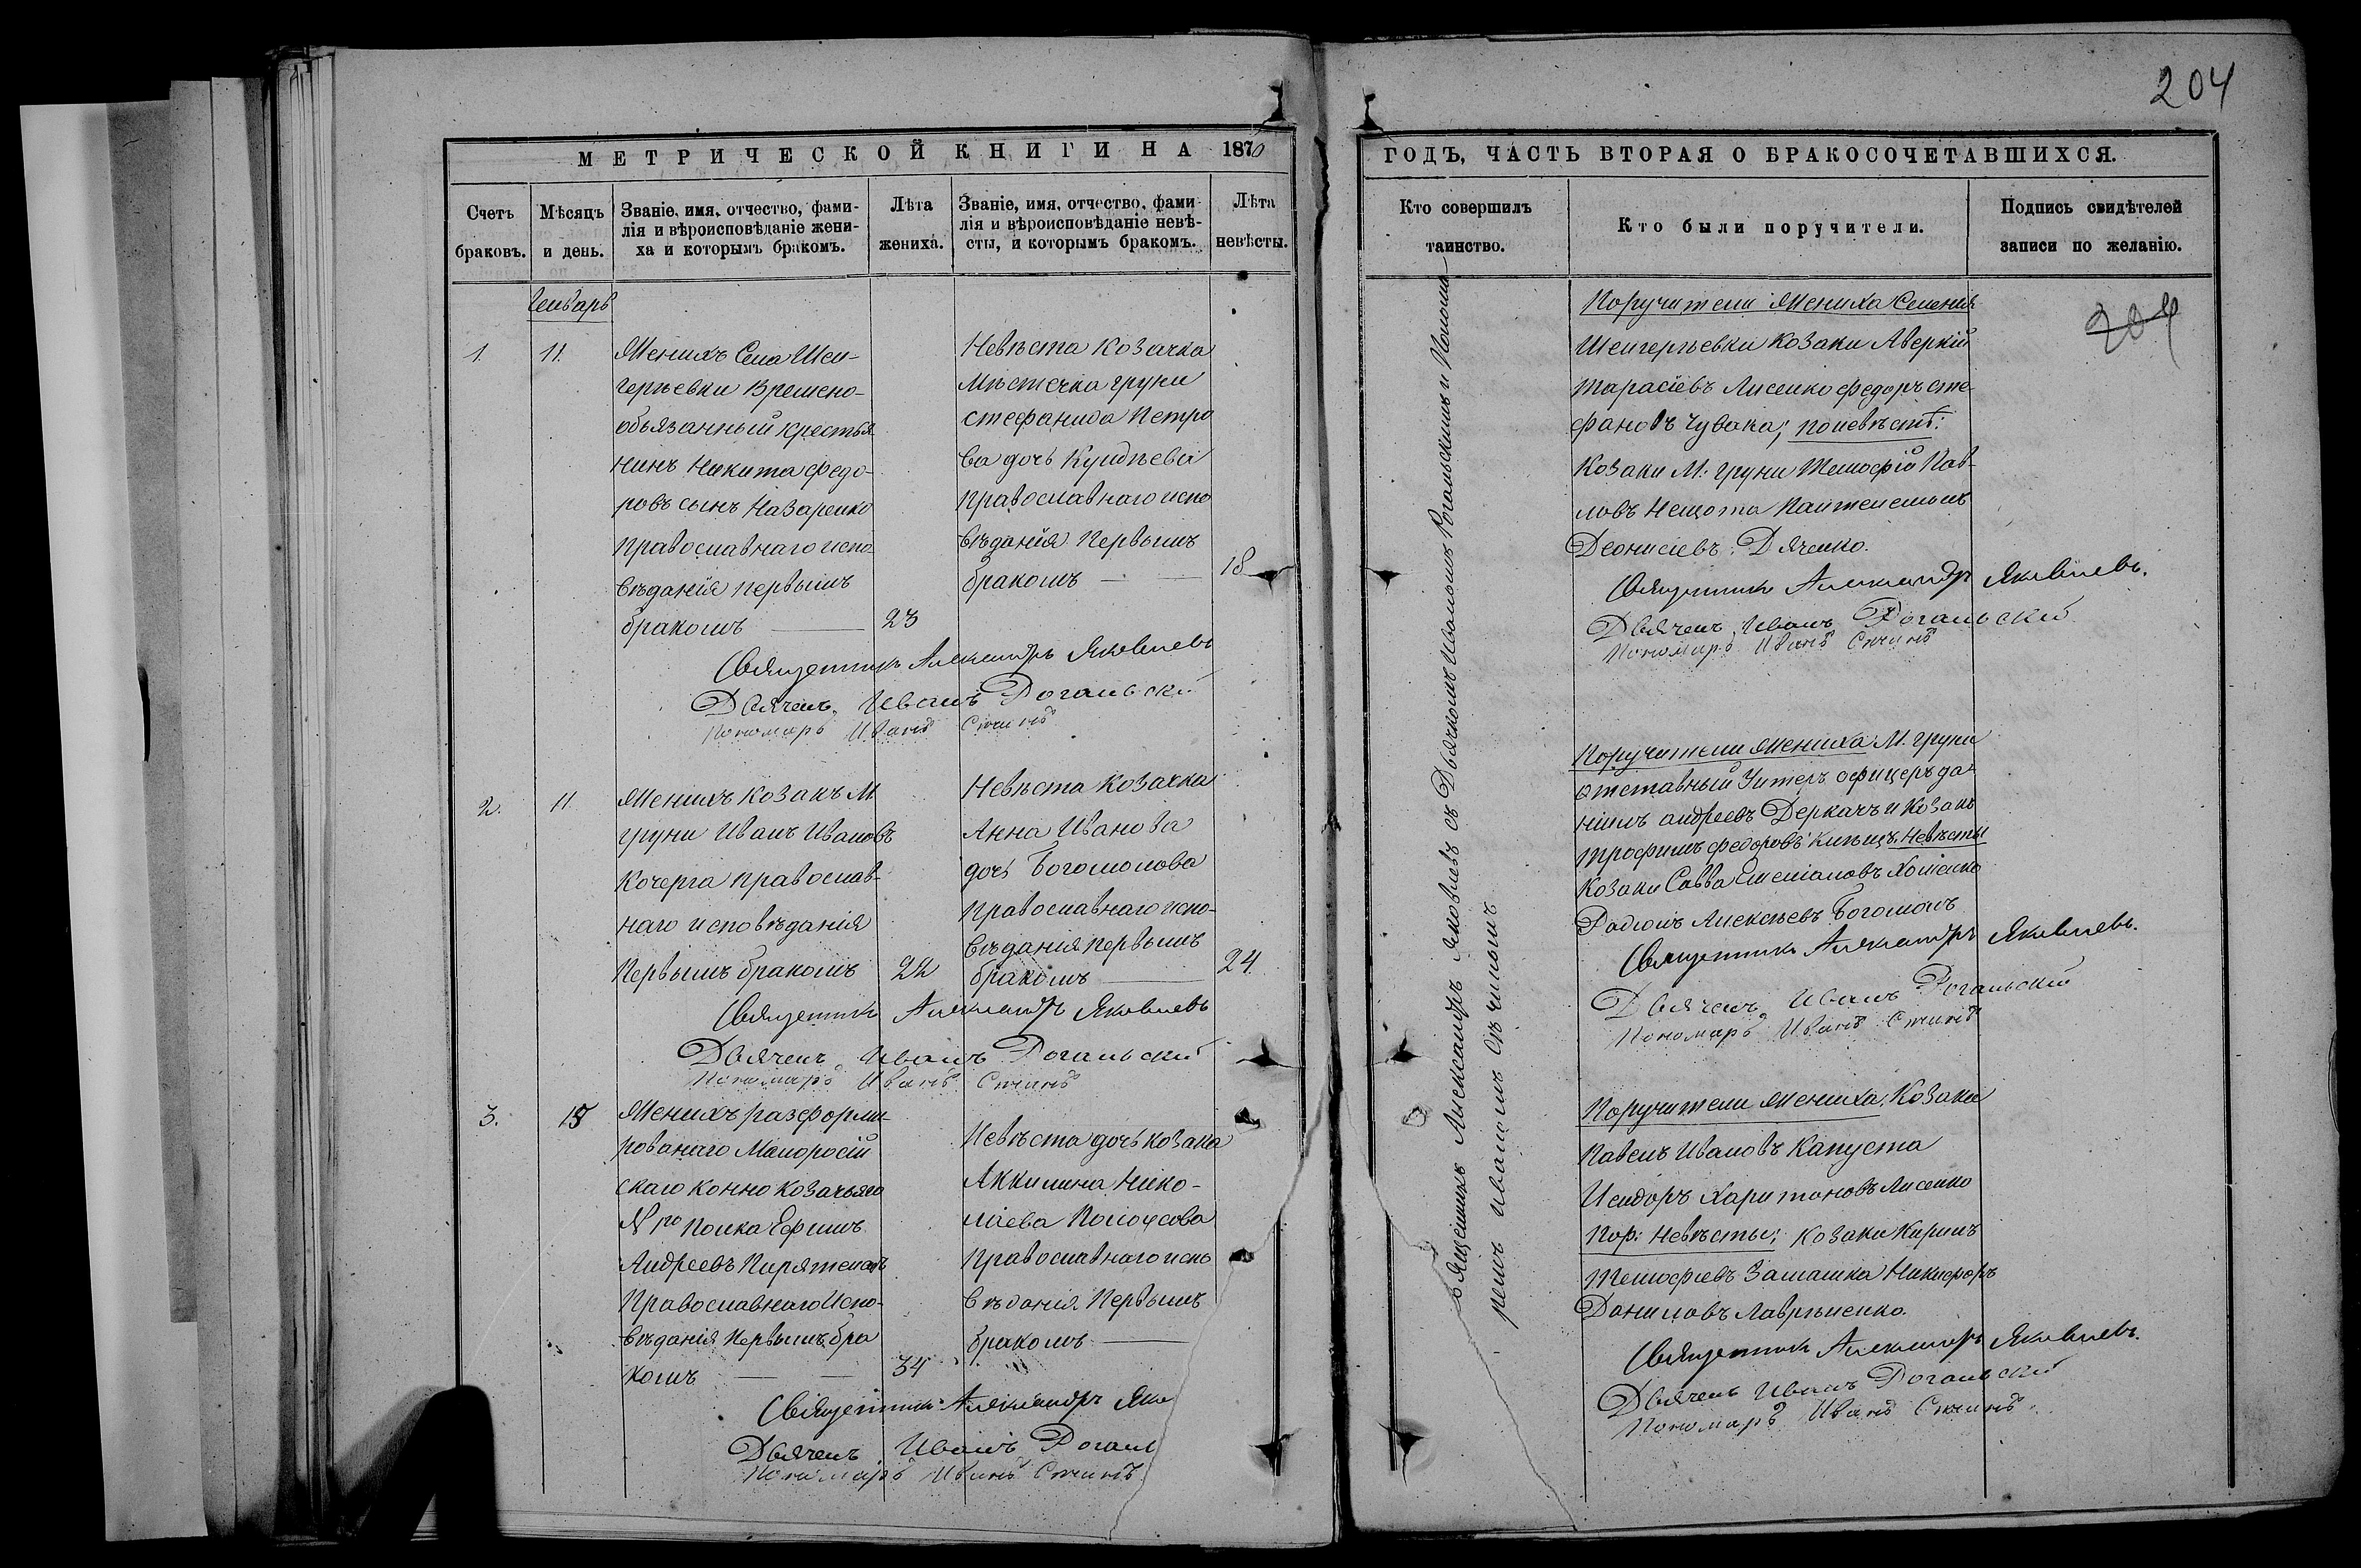 204
МЕТРИЧЕСКОЙ КНИГИ НА 1870
ГОДЪ, ЧАСТЬ ВТОРАЯ О БРАКОСОЧЕТАВШИХСЯ.
Счетъ браковъ.
Мѣсяцъ и день.
Званіе, имя, отчество, фами-
лія и вѣроисповѣданіе жени-
ха и которымъ бракомъ.
Лѣта жениха.
Званіе, имя, отчество, фами
лія и вѣроисповѣданіе невѣ-
сты, и которымъ бракомъ.
Лѣта невѣсты.
Кто совершилъ таинство.
Кто были поручители.
Подпись свидѣтелей
записи по желанію.
Генварь
1.
11.
Женихъ Села Шен-
геръевки Времено-
обязанный крестья
нинъ Никита Федо-
ровъ сынъ Назаренко
Православнаго испо
вѣданія первымъ
бракомъ
23
Невѣста козачка
Мѣстечка груни
Стефанида Петро
ва дочь
Православнаго испо
вѣданія Первымъ
бракомъ
18
Священникъ Александръ Яковлевъ
Дьячекъ Иванъ Рогальский
Пономарь Иванъ
2.
11.
Женихъ козакъ М.
груни Иванъ Ивановъ
Кочерга православ-
наго исповѣданія
Первымъ бракомъ
22
Невѣста Козачка
Анна Иванова
дочь Богомолова
Православнаго испо-
вѣданія первымъ
бракомъ
24.
Священникъ Александръ Яковлевъ
Дьячекъ Иванъ Рогальский
Пономарь Иванъ
3.
15
Женихъ разформи-
рованаго Малоросій
скаго конно козачьяго
полка Ефимъ
Андреевъ
Православнаго Испо-
вѣданія Первымъ бра
комъ
34
Невѣста дочь козака
Аккилина Нико-
лаева
Православнаго испо
вѣданія Первымъ
бракомъ
Священникъ Александръ Яко
Дьячекъ Иванъ Рогаль
Пономарь Иванъ
Священникъ Александръ Яковлевъ съ Дьячкомъ Иваномъ Рогальскимъ и Понома-
ремъ Иваномъ
Поручители Жениха Селенія
Шенгеръевки козаки Аверкій
Тарасіевъ Лисенко Федоръ Сте-
фановъ Чувака; по невѣстѣ:
Козаки М: груни Тимофій Пав-
ловъ Нещота Пантелемонъ
Деонисіевъ Дяченко.
Священникъ Александръ Яковлевъ.
Дьячекъ Иванъ Рогальский
Пономарь Иванъ
Поручители жениха М. груни
отставный Унтеръ офицеръ да-
нилъ андреевъ Деркачъ и Козакъ
Трофимъ федоровъ Невѣсты
Козаки Савва Хоменко
Радіонъ Алексѣевъ Богомолъ
Священникъ Александръ Яковлевъ.
Дьячекъ Иванъ Рогальский
Пономарь Иванъ
Поручители жениха: Козаки
Павелъ Ивановъ Капуста
Исидоръ Харитоновъ Лисенко
Пор: Невѣсты; козаки Кирилъ
Тимофіевъ Никифоръ
Даниловъ Лавриненко.
Священникъ Александръ Яковлевъ.
Дьячекъ Иванъ Рогальский
Пономарь Иванъ